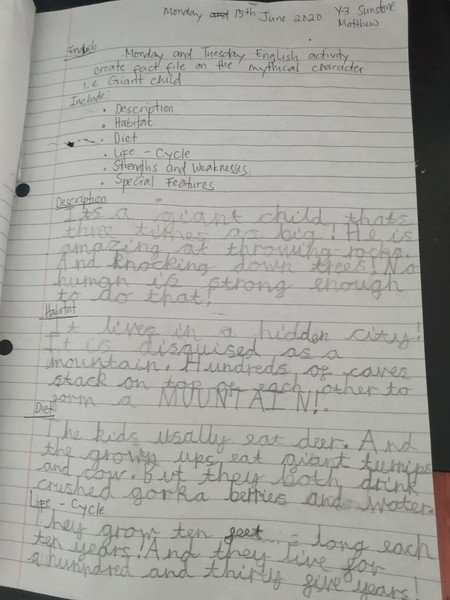 Monday 15th June 2020
Y3 Sunstone
Matthew
English
Monday and Tuesday English activity
create fact file on the mythical character
i.e Giant child
Include:
• Description
• Habitat
• Diet
• Life - Cycle
• Strengths and Weaknesses,
• Special Features
Description
Its a giant child thats
three times as big! He is
amazing at throwing rocks.
And knocking down trees! No
human is strong enough
to do that!
Habitat
It lives in a hidden city!
It is disguised as a
mountain. Hundreds of caves
stack on top of each other to
form a MOUNTAIN!.
Diet
The kids usally eat deer. And
the grown ups eat giant turnips
and cow. But they both drink
crushed gorka berries and water.
Life - Cycle
They grow ten feet long each
ten years! And they live for
a hunndred and thirty five years!